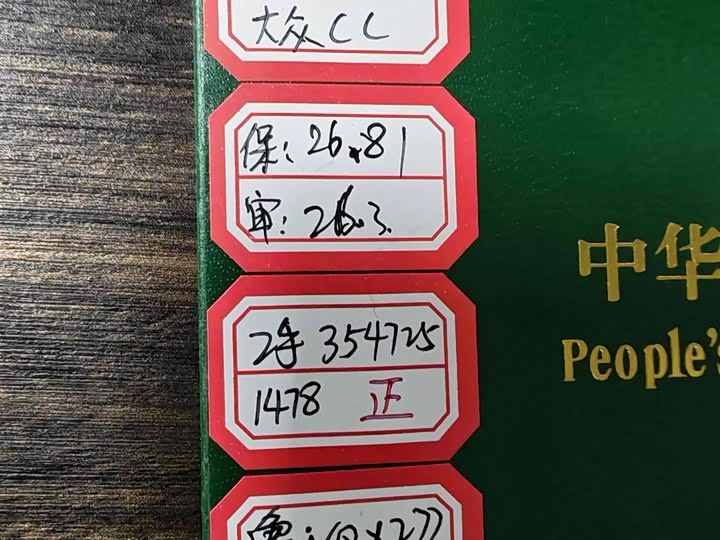 大众CC
保:26.81
审:26.3.
2手 354725
1478 正
中华
People's